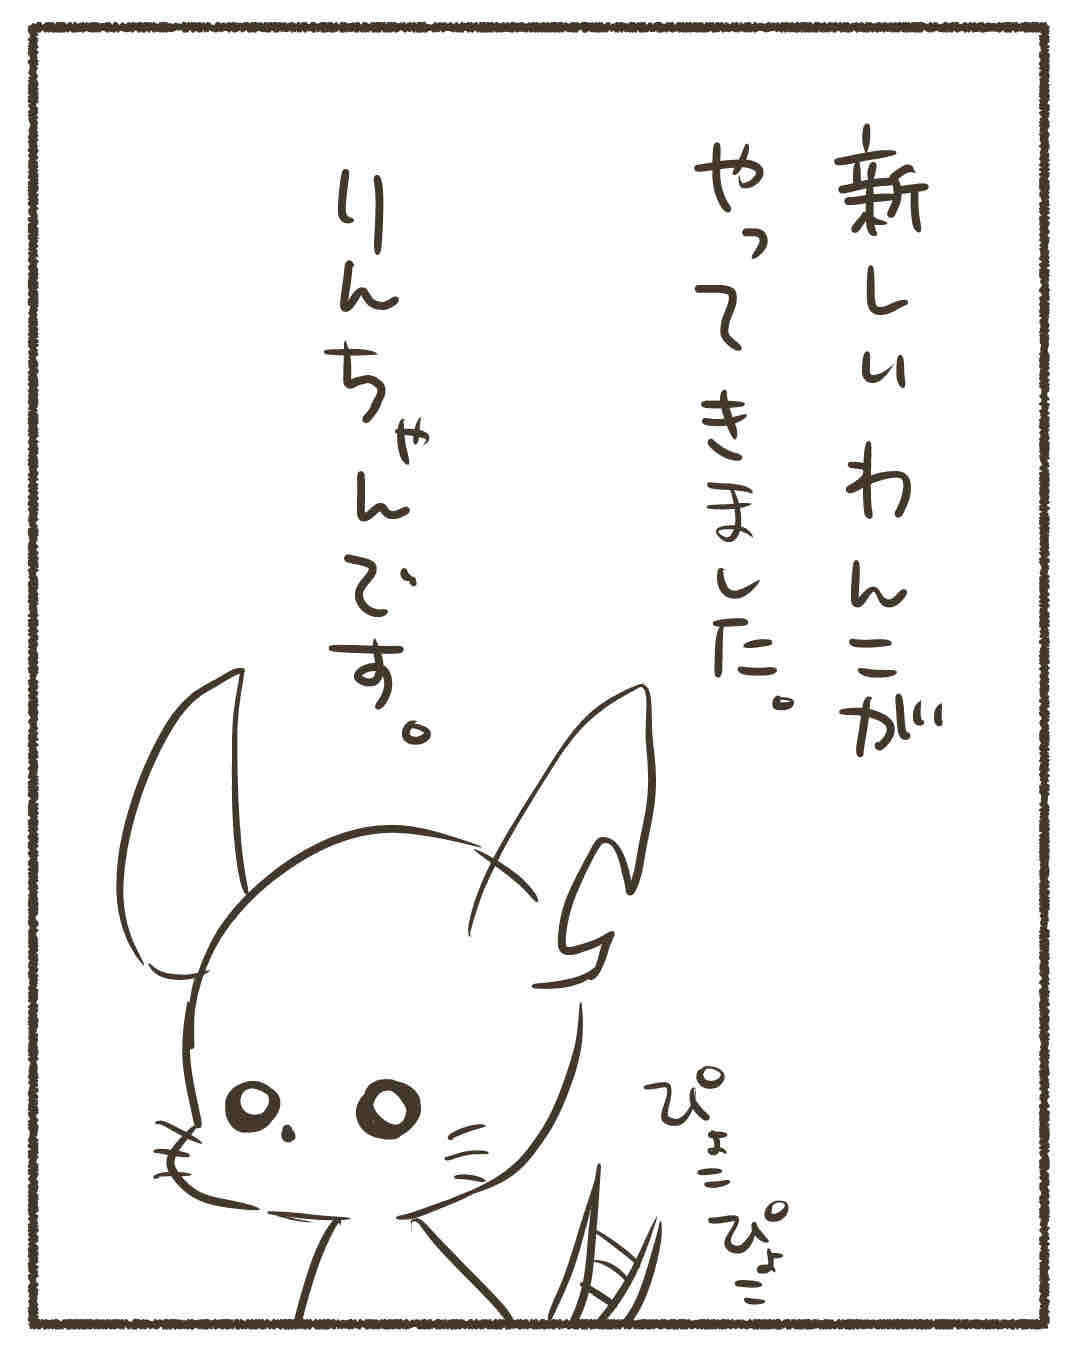 新しいわんこが
やってきました。
りんちゃんです。
ぴょこ
ぴょこ